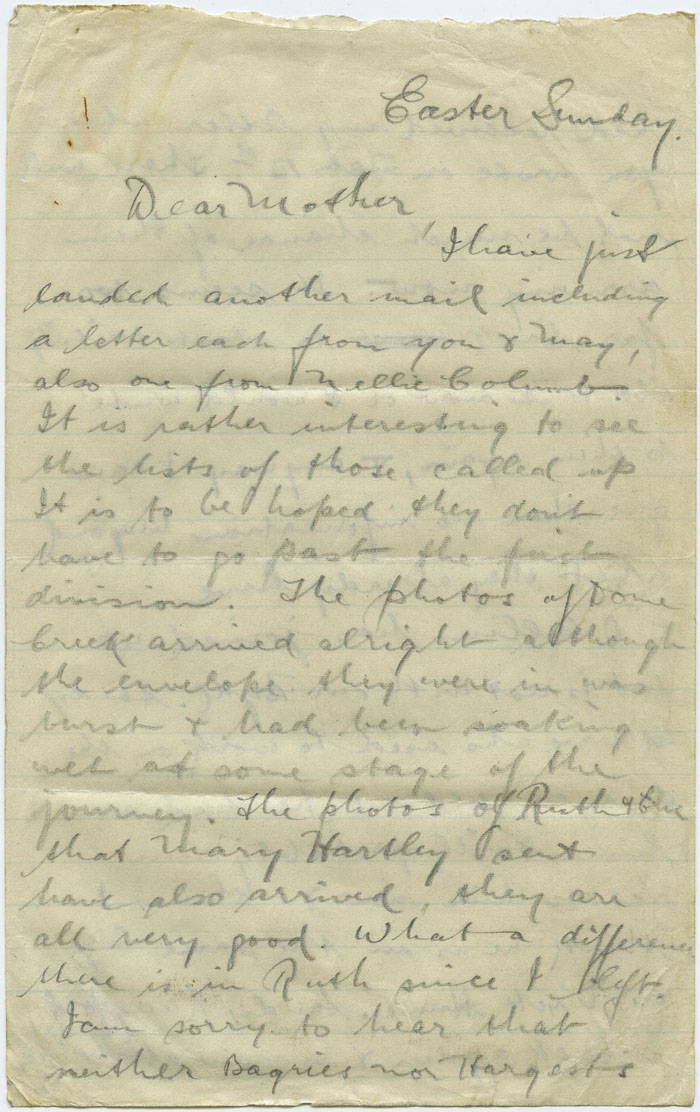 Easter Sunday.
Dear Mother,
I have just
landed another mail including
a letter each from you & May,
also one from Nellie Columb.
It is rather interesting to see
the lists of those called up
It is to be hoped they dont
have to go past the first
division. The photos of Dome
Creek arrived alright although
the envelope they were in was
burst & had been soaking
wet at some stage of the
journey. The photos of Ruth &
that Mary Hartley sent
have also arrived, they are
all very good. What a difference
there is in Ruth since I left.
I am sorry to hear that
neither Bagries nor Hargests